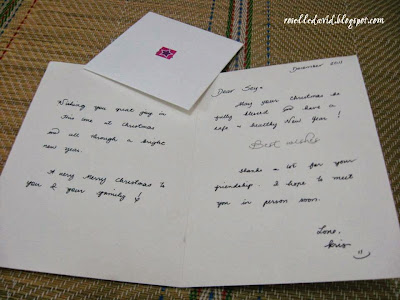 roselledavid.blogspot.com
Wishing you great joy in
this one at Christmas
and all through a bright
new year.
A very Merry Christmas to
you & your family !
December 2011
Dear
May your Christmas be
fully blessed and have a
safe & healthy New Year !
Best wishes
thanks a lot for your
friendship. I hope to meet
you in person soon.
Love,
Kris